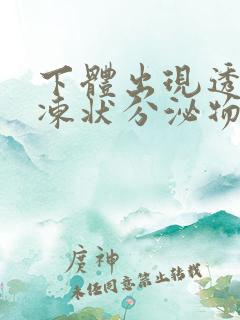 下體出現透
凍狀分泌物
庹神
未经同意禁止转载